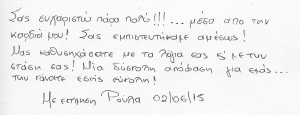 Σας ευχαριστώ πάρα πολύ!!!... μέσα απο την
καρδιά μου! Σας εμπιστευτήκαμε αμέσως!
Μας καθησυχάσατε με τα λόγια σας κ' με την
στάση σας! Μία δύσκολη απόφαση για εμάς...
την κάνατε εσείς εύκολη!
Με εκτίμηση Ρούλα 02/06/15